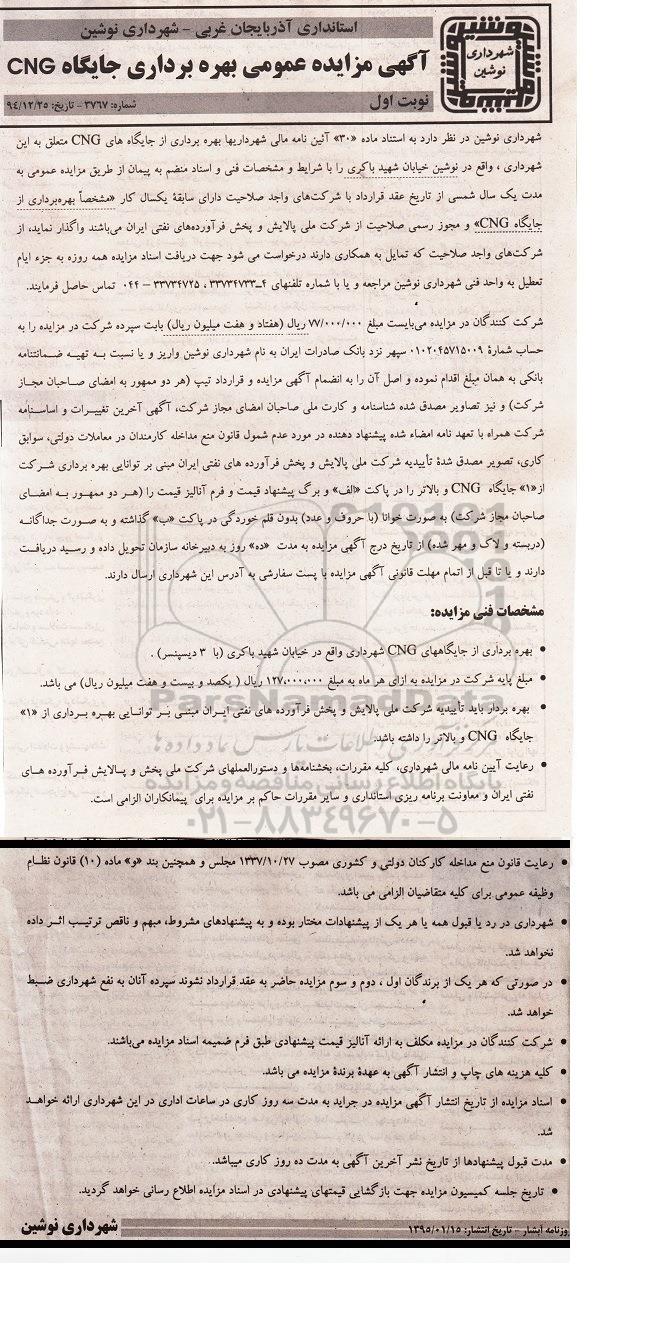 استانداری آذربایجان غربی - شهرداری نوشین
شهرداری
نوشین
آگهی مزایده عمومی بهره برداری جایگاه CNG
نوبت اول
شماره: ۳۷۶۷ - تاریخ: ۹٤/۱۲/۲۵
شهرداری نوشین در نظر دارد به استناد ماده «۳۰» آئین نامه مالی شهرداریها بهره برداری از جایگاه های CNG متعلق به این
شهرداری ، واقع در نوشین خیابان شهید باکری را با شرایط و مشخصات فنی و اسناد منضم به پیمان از طریق مزایده عمومی به
مدت یک سال شمسی از تاریخ عقد قرارداد با شرکت‌های واجد صلاحیت دارای سابقهٔ یکسال کار «مشخصاً بهره‌برداری از
جایگاه CNG» و مجوز رسمی صلاحیت از شرکت ملی پالایش و پخش فرآورده‌های نفتی ایران می‌باشند واگذار نماید، از
شرکت‌های واجد صلاحیت که تمایل به همکاری دارند درخواست می شود جهت دریافت اسناد مزایده همه روزه به جزء ایام
تعطیل به واحد فنی شهرداری نوشین مراجعه و یا با شماره تلفنهای ۴_۳۳۷۳۴۷۳۳ ، ۳۳۷۳۴۷۲۵ – ۰۴۴ تماس حاصل فرمایند.
شرکت کنندگان در مزایده می‌بایست مبلغ ۷۷/۰۰۰/۰۰۰ ریال (هفتاد و هفت میلیون ریال) بابت سپرده شرکت در مزایده را به
حساب شمارهٔ ۰۱۰۲۰۴۵۷۱۵۰۰۹ سپهر نزد بانک صادرات ایران به نام شهرداری نوشین واریز و یا نسبت به تهیه ضمانتنامه
بانکی به همان مبلغ اقدام نموده و اصل آن را به انضمام آگهی مزایده و قرارداد تیپ (هر دو ممهور به امضای صاحبان مجاز
شرکت) و نیز تصاویر مصدق شده شناسنامه و کارت ملی صاحبان امضای مجاز شرکت، آگهی آخرین تغییرات و اساسنامه
شرکت همراه با تعهد نامه امضاء شده پیشنهاد دهنده در مورد عدم شمول قانون منع مداخله کارمندان در معاملات دولتی، سوابق
کاری، تصویر مصدق شدهٔ تأییدیه شرکت ملی پالایش و پخش فرآورده های نفتی ایران مبنی بر توانایی بهره برداری شرکت
از«۱» جایگاه CNG و بالاتر را در پاکت «الف» و برگ پیشنهاد قیمت و فرم آنالیز قیمت را (هر دو ممهور به امضای
صاحبان مجاز شرکت) به صورت خوانا (با حروف و عدد) بدون قلم خوردگی در پاکت «ب» گذاشته و به صورت جداگانه
(دربسته و لاک و مهر شده) از تاریخ درج آگهی مزایده به مدت «ده» روز به دبیرخانه سازمان تحویل داده و رسید دریافت
دارند و یا تا قبل از اتمام مهلت قانونی آگهی مزایده با پست سفارشی به آدرس این شهرداری ارسال دارند.
مشخصات فنی مزایده:
• بهره برداری از جایگاههای CNG شهرداری واقع در خیابان شهید باکری (با ۳ دیسپنسر) .
• مبلغ پایه شرکت در مزایده به ازای هر ماه به مبلغ ۱۲۷،۰۰۰،۰۰۰ ریال ( یکصد و بیست و هفت میلیون ریال) می باشد.
• بهره بردار باید تأییدیه شرکت ملی پالایش و پخش فرآورده های نفتی ایران مبنی بر توانایی بهره برداری از «۱»
جایگاه CNG و بالاتر را داشته باشد.
• رعایت آیین نامه مالی شهرداری، کلیه مقررات، بخشنامه‌ها و دستورالعملهای شرکت ملی پخش و پالایش فرآورده های
نفتی ایران و معاونت برنامه ریزی استانداری و سایر مقررات حاکم بر مزایده برای پیمانکاران الزامی است.
ParsNamadData
پایگاه اطلاع رسانی مناقصه و مزایده
۰۲۱-۸۸۳۴۹۶۷۰-۵
• رعایت قانون منع مداخله کارکنان دولتی و کشوری مصوب ۱۳۳۷/۱۰/۲۷ مجلس و همچنین بند «و» ماده (۱۰) قانون نظام
وظیفه عمومی برای کلیه متقاضیان الزامی می باشد.
• شهرداری در رد یا قبول همه یا هر یک از پیشنهادات مختار بوده و به پیشنهادهای مشروط، مبهم و ناقص ترتیب اثر داده
نخواهد شد.
• در صورتی که هر یک از برندگان اول ، دوم و سوم مزایده حاضر به عقد قرارداد نشوند سپرده آنان به نفع شهرداری ضبط
خواهد شد.
• شرکت کنندگان در مزایده مکلف به ارائه آنالیز قیمت پیشنهادی طبق فرم ضمیمه اسناد مزایده می‌باشند.
• کلیه هزینه های چاپ و انتشار آگهی به عهدهٔ برندهٔ مزایده می باشد.
• اسناد مزایده از تاریخ انتشار آگهی مزایده در جراید به مدت سه روز کاری در ساعات اداری در این شهرداری ارائه خواهد
شد.
• مدت قبول پیشنهادها از تاریخ نشر آخرین آگهی به مدت ده روز کاری میباشد.
• تاریخ جلسه کمیسیون مزایده جهت بازگشایی قیمتهای پیشنهادی در اسناد مزایده اطلاع رسانی خواهد گردید.
روزنامه آبشار - تاریخ انتشار: ۱۳۹۵/۰۱/۱۵
شهرداری نوشین